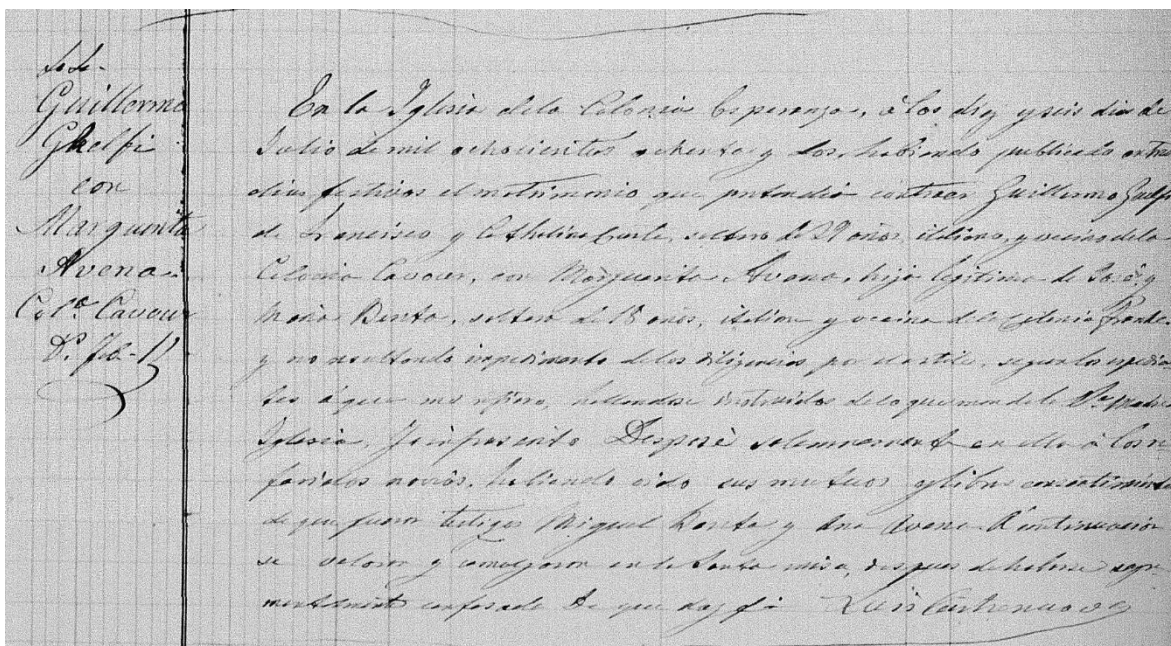 Guillermo
Ghelfi
con
Margarita
Avena
Col.ª Cavour
En la Iglesia de la Colonia Esperanza, á los diez y seis dias de
Julio de mil ochocientos ochenta y dos, habiendo publicado en tres
dias festivos el matrimonio que pretendia contraer Guillermo
de Francisco y soltero de 29 años, italiano, y vecino de la
Colonia Cavour, con Margarita Avena, hija legitima de José y
Maria Benta, soltera de 18 años, italiana y vecina de la Colonia
y no resultando impedimento de las diligencias por segun los espedien-
tes á que me refiero, hallandose instruidos de lo que manda la Sta Madre
Iglesia, Desposé solemnemente en ella á los re-
feridos novios, habiendo oido sus mutuos y libres consentimientos
de que fueron testigos Miguel Benta y Ana Avena. A continuacion
se velaron y comulgaron en la Santa misa, despues de haberse
confesado de que doy fé Luis